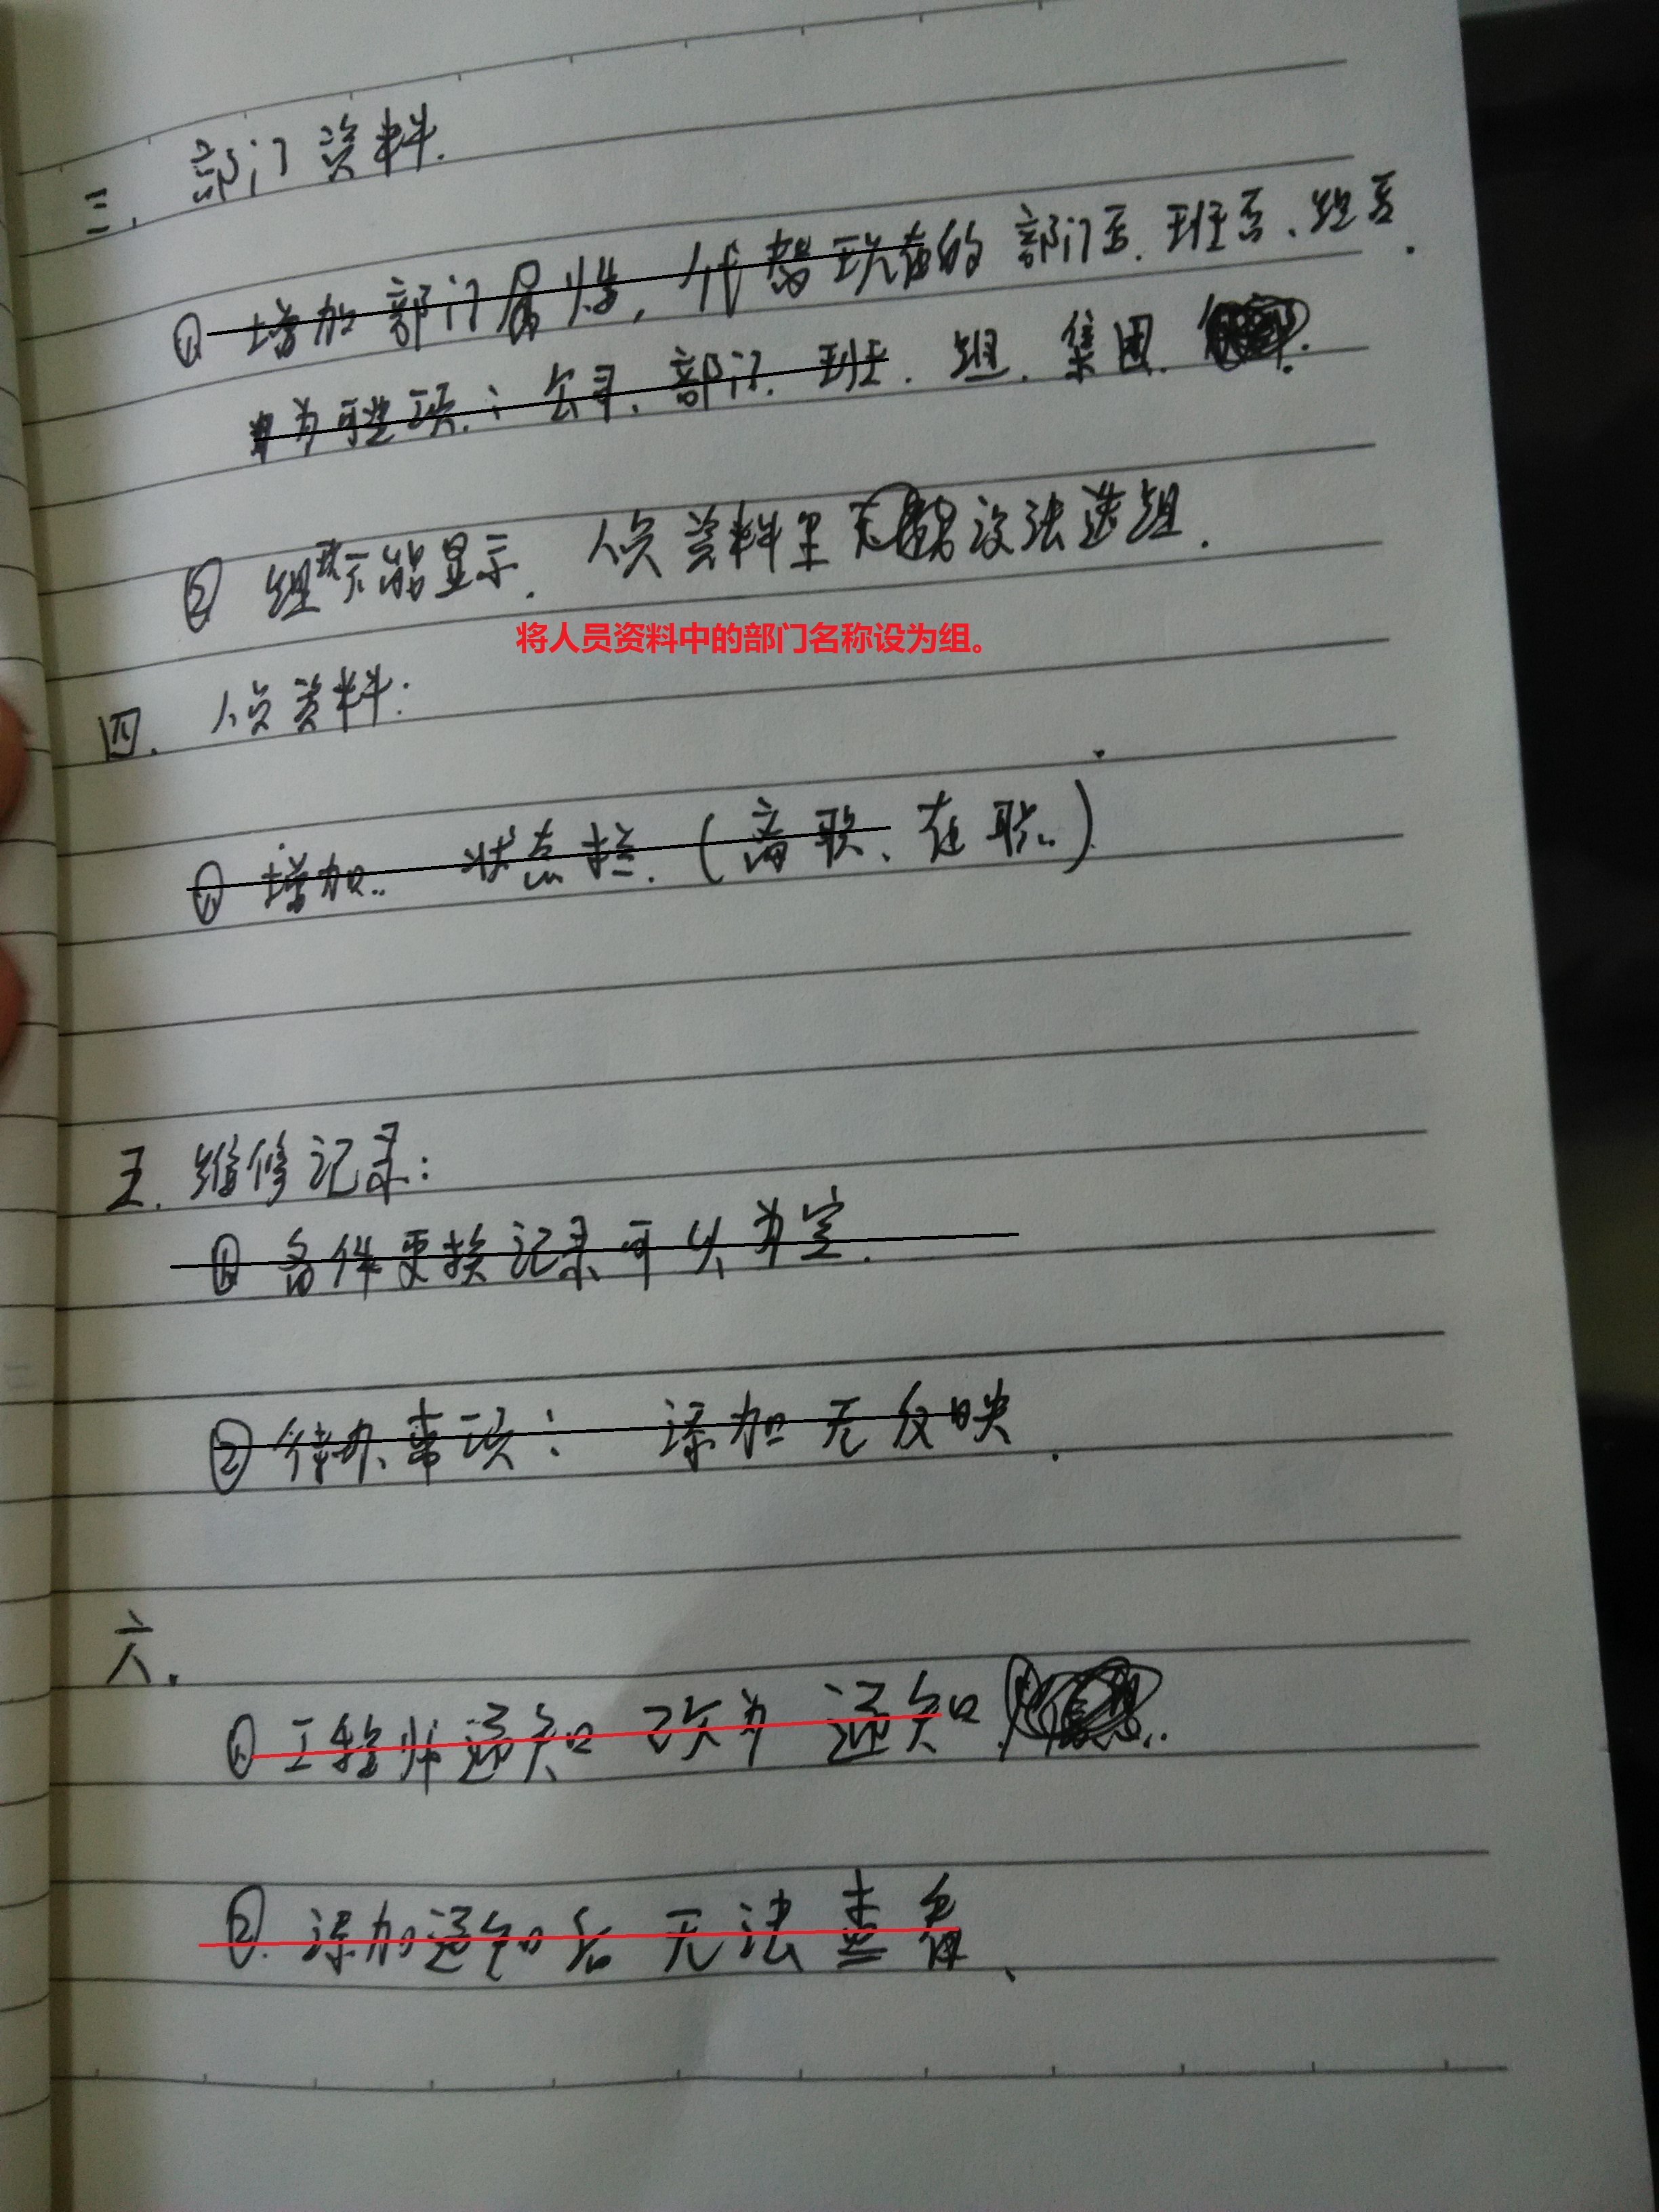 三. 部门资料.
① 增加部门属性, 代替现在的部门否. 班否、组否.
为可选项: 公司、部门、班、组、集团.
② 组不能显示. 人员资料里 没法选组.
将人员资料中的部门名称设为组。
四. 人员资料:
① 增加.. 状态栏. (离职、在职.)
五. 维修记录:
① 备件更换记录可以为空.
② 待办事项: 添加无反映.
六.
① 工程师通知 改为 通知
②. 添加通知后 无法查看、